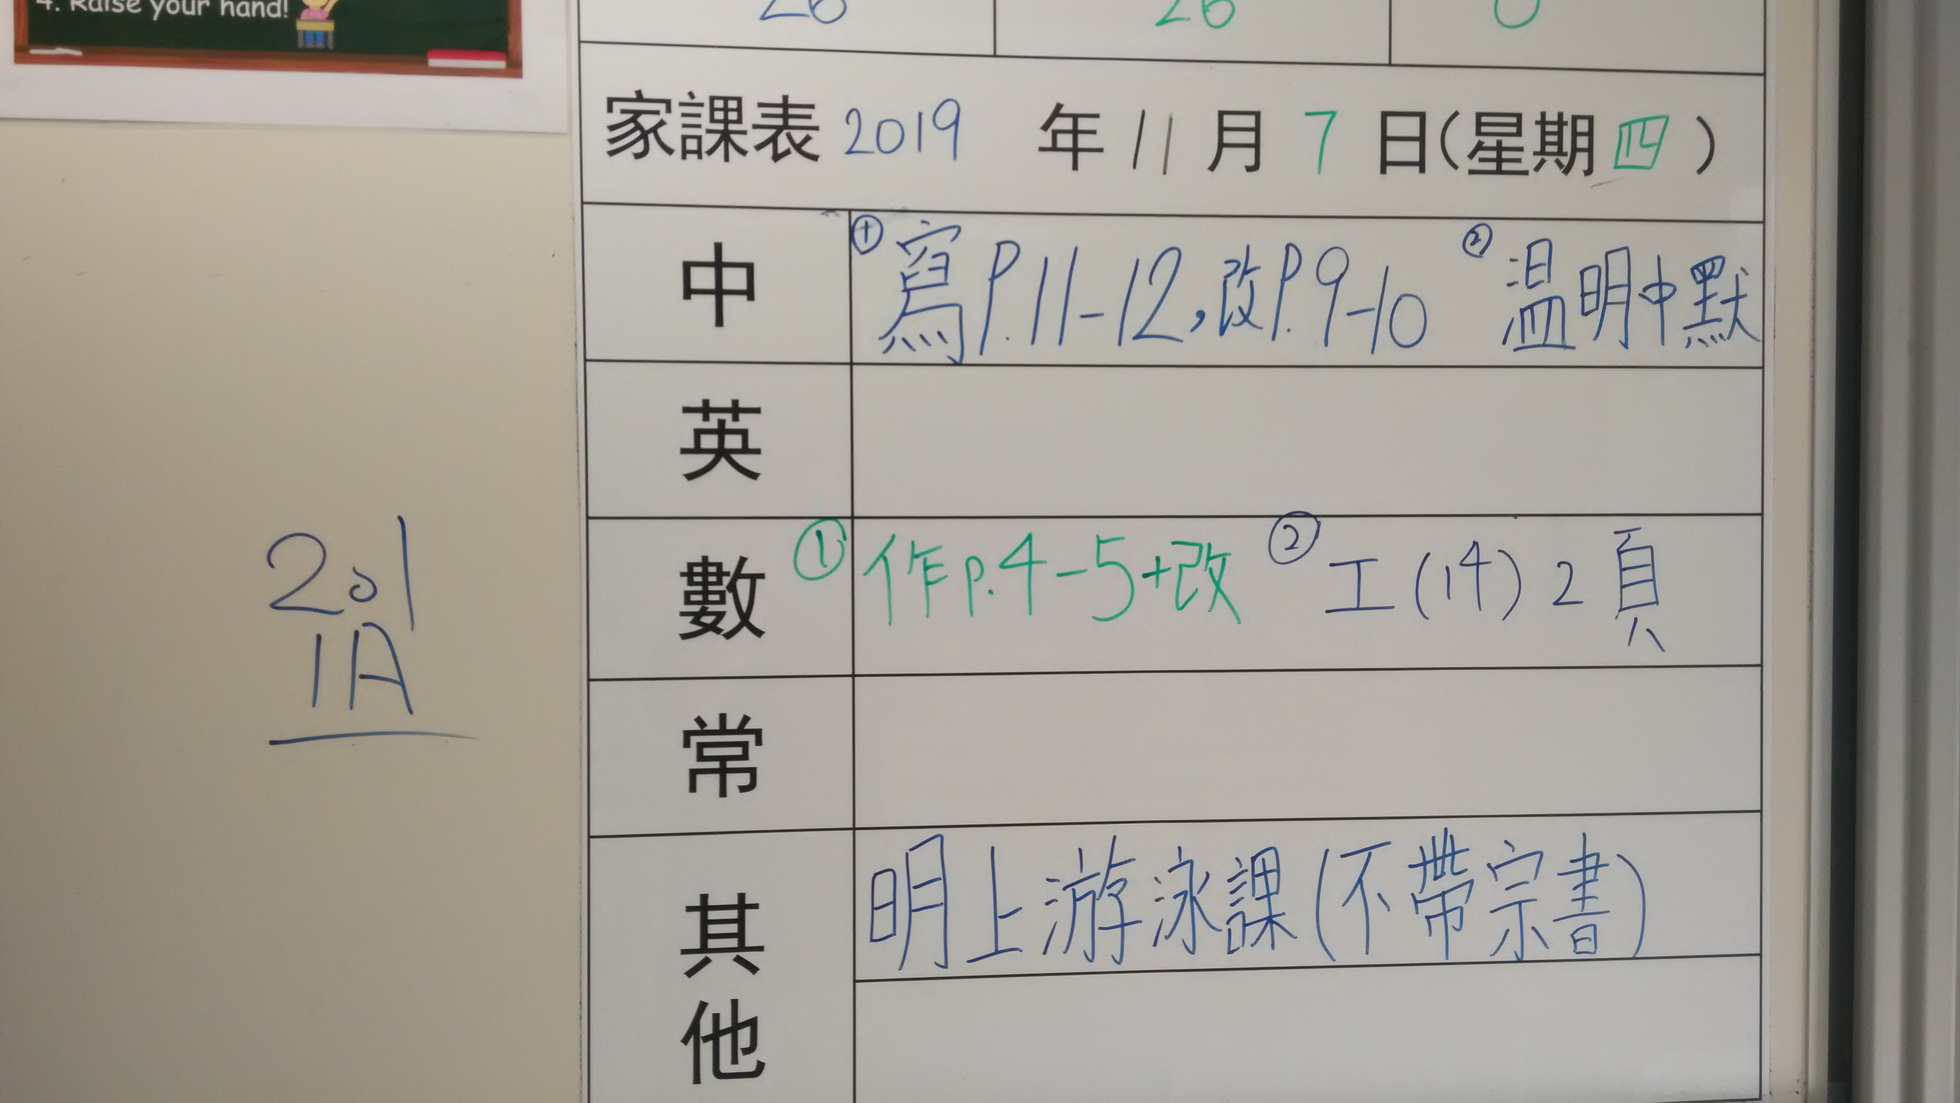 4. Raise your hand!
26 26 0
家課表 2019 年 11 月 7 日(星期四)
中 ① 寫P.11-12,改P.9-10 ② 温明中默
英
數 ① 作p.4-5+改 ② 工(14) 2頁
常
其他 明上游泳課(不帶宗書)
201
1A